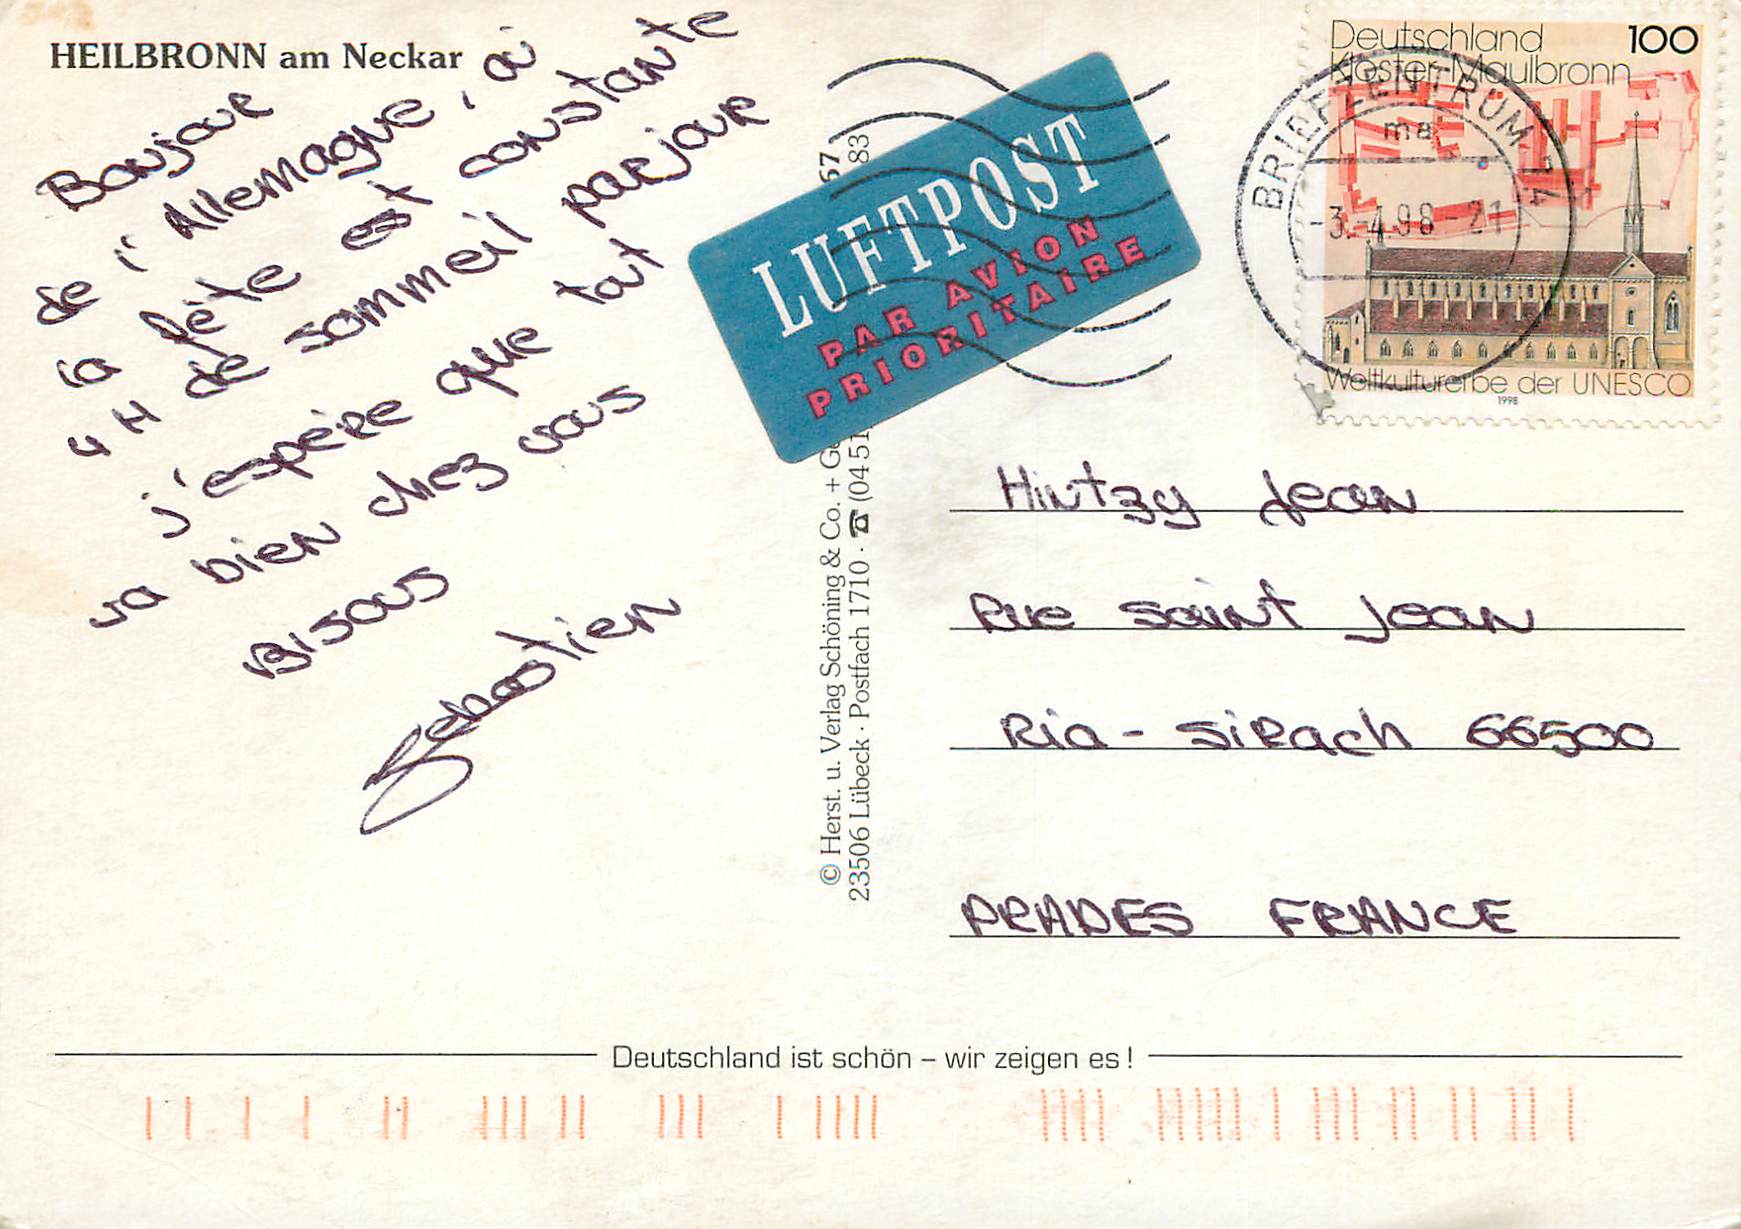 HEILBRONN am Neckar
Bonjour
de l'Allemagne, où
la fête est constante
4 H de sommeil par jour
j'espère que tout
va bien chez vous
BISOUS
Sebastien
LUFTPOST
PAR AVION
PRIORITAIRE
Deutschland 100
Kloster Maulbronn
Weltkulturerbe der UNESCO
1998
BRIEFZENTRUM 74
ma
-3.-4.98-21
© Herst. u. Verlag Schöning & Co. + G
67
23506 Lübeck · Postfach 1710 · ☎ (04 51
83
Hintzy Jean
Rue saint Jean
Ria-sirach 66500
PRADES FRANCE
Deutschland ist schön – wir zeigen es !